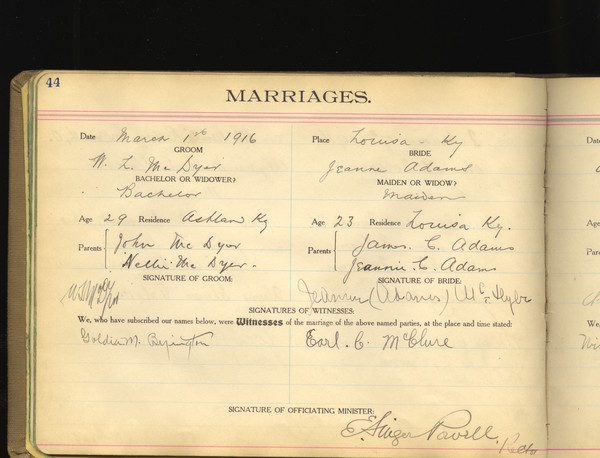 44
MARRIAGES.
Date March 1st 1916 Place Louisa - Ky
GROOM BRIDE
W. L. McDyer Jeanne Adams
BACHELOR OR WIDOWER? MAIDEN OR WIDOW?
Bachelor Maiden
Age 29 Residence Ashland Ky Age 23 Residence Louisa Ky.
Parents John McDyer Parents James. C. Adams
Nellie McDyer - Jeannie. C. Adams
SIGNATURE OF GROOM: SIGNATURE OF BRIDE:
(Adams)
SIGNATURES OF WITNESSES:
We, who have subscribed our names below, were Witnesses of the marriage of the above named parties, at the place and time stated:
Goldia M. Earl. C. McClure
SIGNATURE OF OFFICIATING MINISTER:
Powell.
Date
Age
Parents
We, who